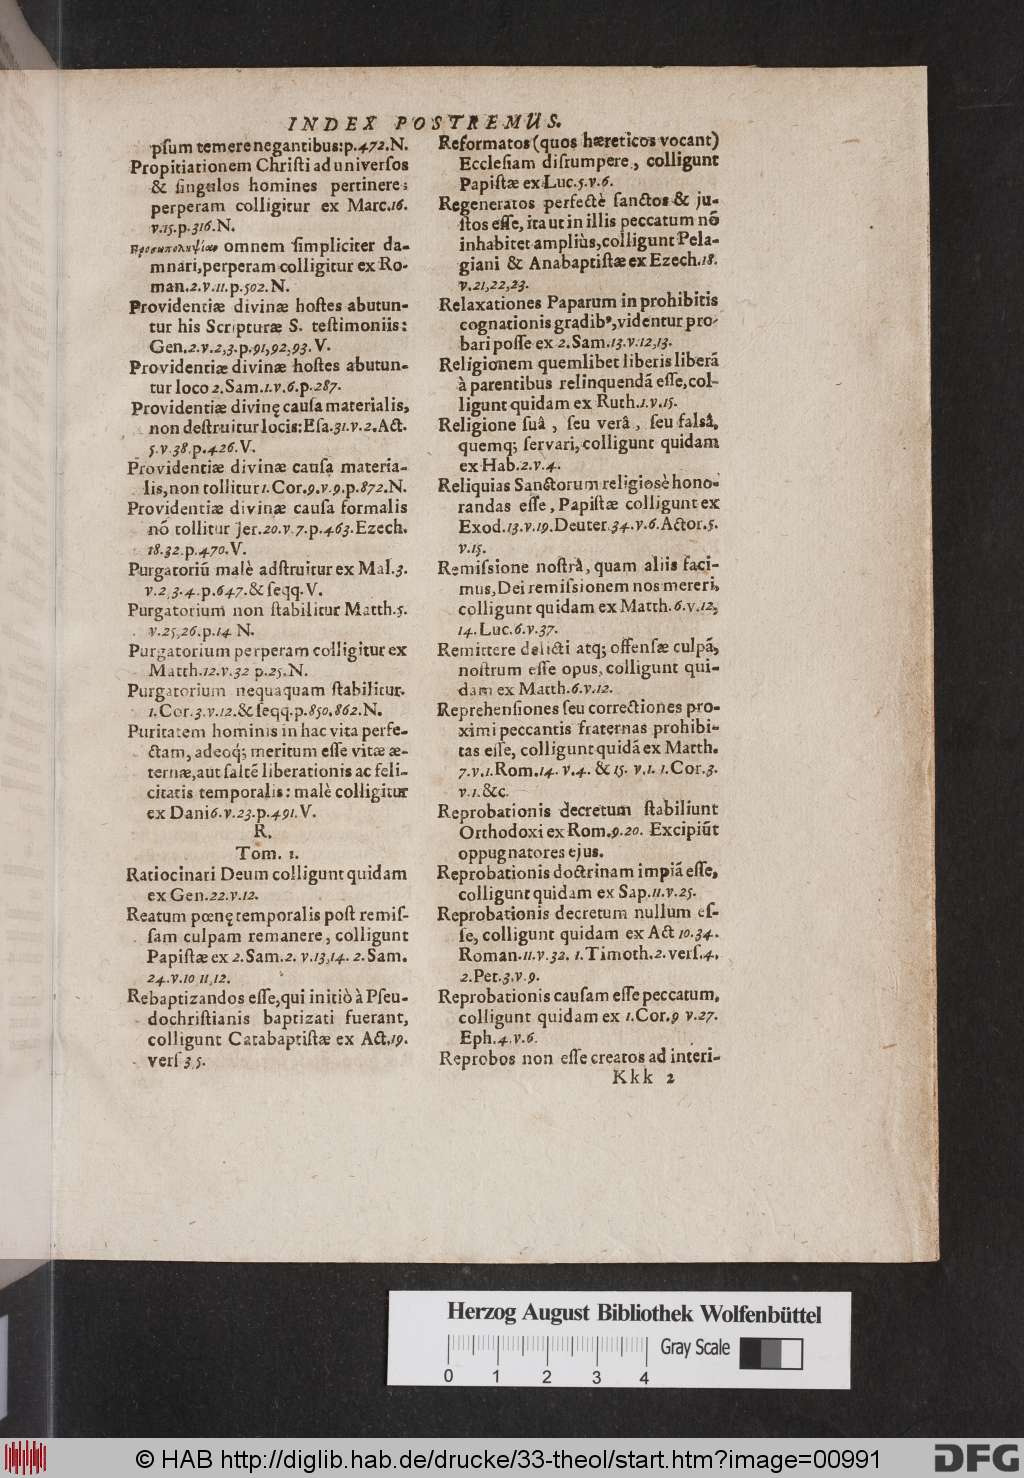 INDEX POSTREMUS.
pſum temere negantibus: p.472.N.
Propitiationem Chriſti ad univerſos
& ſingulos homines pertinere:
perperam colligitur ex Marc.16.
v.15.p.316.N.
Προσωποληψίαν omnem ſimpliciter da-
mnari, perperam colligitur ex Ro-
man.2.v.11.p.502.N.
Providentiæ divinæ hoſtes abutun-
tur his Scripturæ S. teſtimoniis:
Gen.2.v.2,3.p.91,92,93.V.
Providentiæ divinæ hoſtes abutun-
tur loco 2.Sam.1.v.6.p.287.
Providentiæ divinę cauſa materialis,
non deſtruitur locis: Eſa.31.v.2.Act.
5.v.38.p.426.V.
Providentiæ divinæ cauſa materia-
lis, non tollitur 1.Cor.9.v.9.p.872.N.
Providentiæ divinæ cauſa formalis
nō tollitur Jer.20.v.7.p.463.Ezech.
18.32.p.470.V.
Purgatoriū malè adſtruitur ex Mal.3.
v.2,3.4.p.647.& ſeqq.V.
Purgatorium non ſtabilitur Matth.5.
v.25,26.p.14 N.
Purgatorium perperam colligitur ex
Matth.12.v.32 p.25.N.
Purgatorium nequaquam ſtabilitur.
1.Cor.3.v.12.& ſeqq.p.850.862.N.
Puritatem hominis in hac vita perfe-
ctam, adeoq; meritum eſſe vitæ æ-
ternæ, aut ſaltē liberationis ac feli-
citatis temporalis: malè colligitur
ex Dani 6.v.23.p.491.V.
R.
Tom. 1.
Ratiocinari Deum colligunt quidam
ex Gen.22.v.12.
Reatum pœnę temporalis poſt remiſ-
ſam culpam remanere, colligunt
Papiſtæ ex 2.Sam.2. v.13,14. 2.Sam.
24.v.10 11,12.
Rebaptizandos eſſe, qui initiò à Pſeu-
dochriſtianis baptizati fuerant,
colligunt Catabaptiſtæ ex Act.19.
verſ 3 5.
Reformatos (quos hæreticos vocant)
Eccleſiam diſrumpere, colligunt
Papiſtæ ex Luc.5.v.6.
Regeneratos perfectè ſanctos & ju-
ſtos eſſe, ita ut in illis peccatum nō
inhabitet ampliùs, colligunt Pela-
giani & Anabaptiſtæ ex Ezech.18.
v.21,22,23.
Relaxationes Paparum in prohibitis
cognationis gradibꝰ, videntur pro-
bari poſſe ex 2.Sam.13.v.12,13.
Religionem quemlibet liberis liberā
à parentibus relinquendā eſſe, col-
ligunt quidam ex Ruth.1.v.15.
Religione ſuâ, ſeu verâ, ſeu falsâ,
quemq; ſervari, colligunt quidam
ex Hab.2.v.4.
Reliquias Sanctorum religiosè hono-
randas eſſe, Papiſtæ colligunt ex
Exod.13.v.19.Deuter.34.v.6.Actor.5.
v.15.
Remiſsione noſtrâ, quam aliis faci-
mus, Dei remiſsionem nos mereri,
colligunt quidam ex Matth.6.v.12,
14.Luc.6.v.37.
Remittere delicti atq; offenſæ culpā,
noſtrum eſſe opus, colligunt qui-
dam ex Matth.6.v.12.
Reprehenſiones ſeu correctiones pro-
ximi peccantis fraternas prohibi-
tas eſſe, colligunt quidā ex Matth.
7.v.1.Rom.14. v.4. & 15. v.1. 1.Cor.3.
v.1.&c.
Reprobationis decretum ſtabiliunt
Orthodoxi ex Rom.9.20. Excipiūt
oppugnatores ejus.
Reprobationis doctrinam impiā eſſe,
colligunt quidam ex Sap.11.v.25.
Reprobationis decretum nullum eſ-
ſe, colligunt quidam ex Act 10.34.
Roman.11.v.32. 1.Timoth.2.verſ.4.
2.Pet.3.v.9.
Reprobationis cauſam eſſe peccatum,
colligunt quidam ex 1.Cor.9 v.27.
Eph.4.v.6.
Reprobos non eſſe creatos ad interi-
Kkk 2
Herzog August Bibliothek Wolfenbüttel
Gray Scale
0 1 2 3 4
© HAB http://diglib.hab.de/drucke/33-theol/start.htm?image=00991
DFG